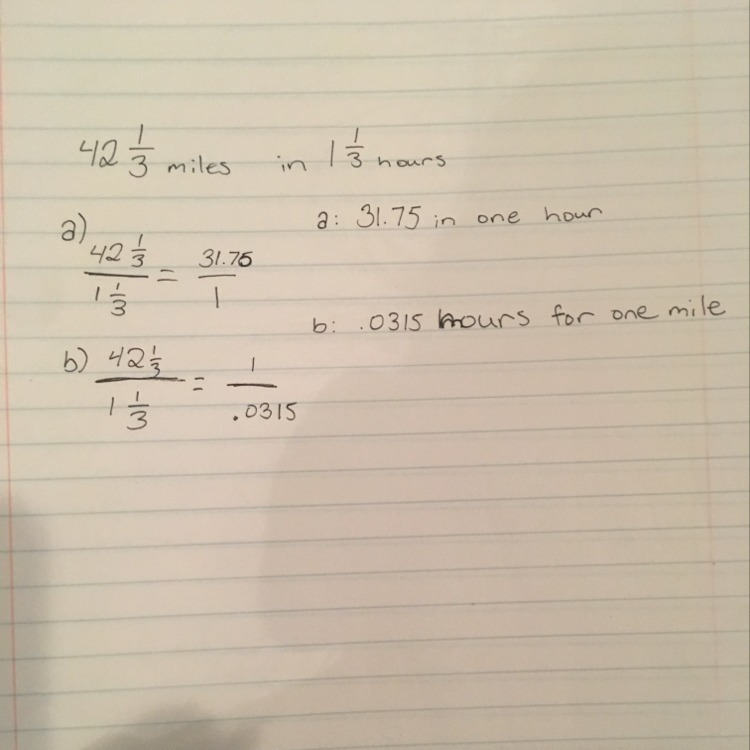 42 1/3 miles in 1 1/3 hours
a)
42 1/3 / 1 1/3 = 31.75 / 1
a: 31.75 in one hour
b: .0315 hours for one mile
b) 42 1/3 / 1 1/3 = 1 / .0315